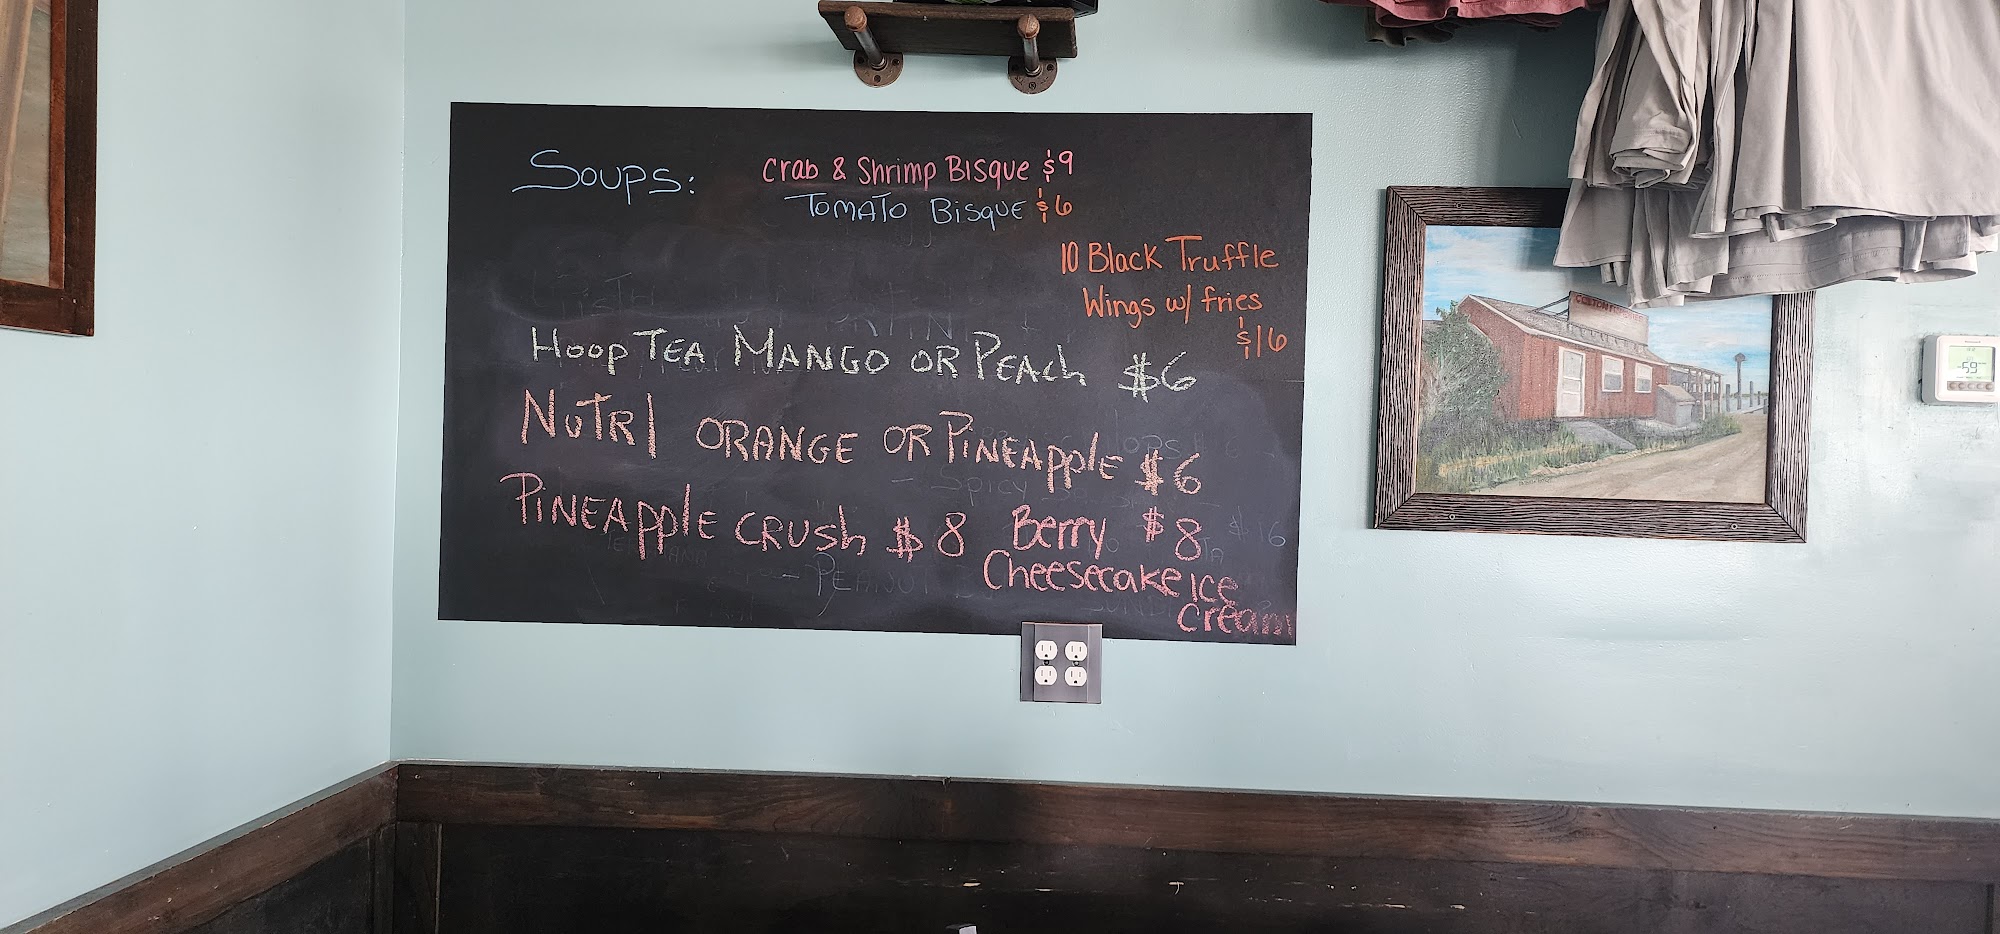 Soups: Crab & Shrimp Bisque $9
Tomato Bisque $6
10 Black Truffle
Wings w/ fries
$16
Hoop Tea Mango or Peach $6
Nutrl Orange or Pineapple $6
Pineapple Crush $8 Berry $8
Cheesecake Ice
Cream